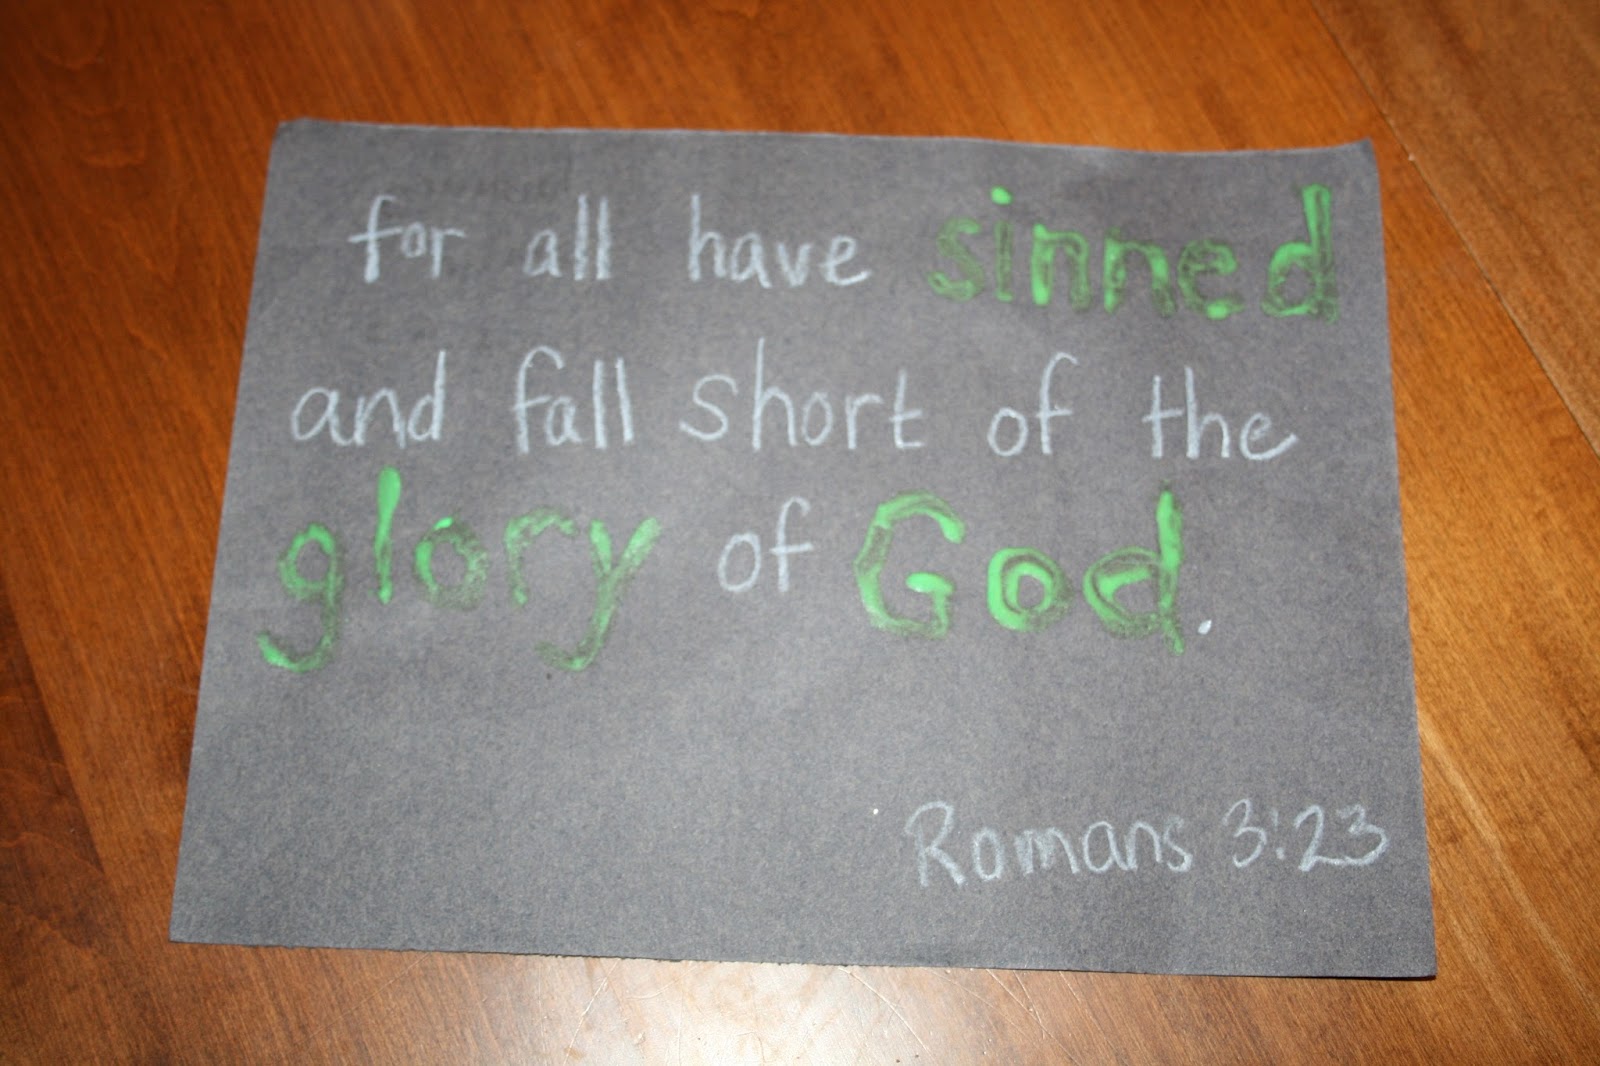 for all have sinned
and fall short of the
glory of God.
Romans 3:23